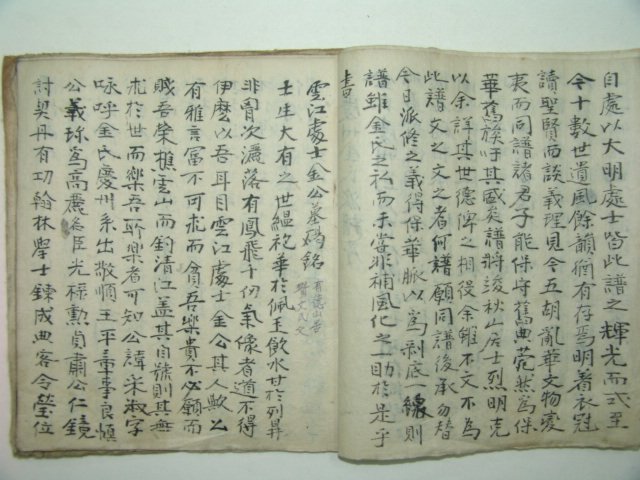 自處以大明處士皆此譜之輝光而式至
今十數世遺風餘韻猶有存焉明着衣冠
讀聖賢而談義理見今五胡亂華文物變
夷而同譜諸君子能保守舊典菀然爲保
華舊族于其國矣譜將浚秋山居士烈明克
以余詳其世德俾之相役余雖不文不爲
此譜文之文之者何譜願同譜後承勿替
今日派修之義得保華脈以爲剥底一線則
譜雖金氏之私而未嘗非補風化之一助於是乎
書
雲江處士金公墓碣銘
士生大有之世縕袍華於佩玉飮水甘於列鼎
非胷次灑落有鳳飛千仞氣像者道不得
伊麽以吾耳目雲江處士金公其人歟公
有雅言富不可求而貪吾樂貴不必願而
賤吾榮樵雲山而釣清江盖其自號則其無
求於世而樂吾所樂者可知公諱 淑字
咏呼金氏慶州系出敬順王平章事良愼
公義珎爲高麗名臣光祿勲貞肅公仁鏡
討契丹有功翰林學士鍊成典客令瑩位